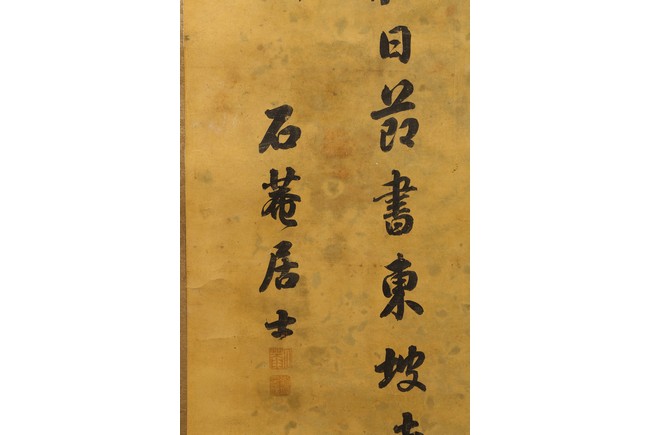 日節書東坡
石菴居士